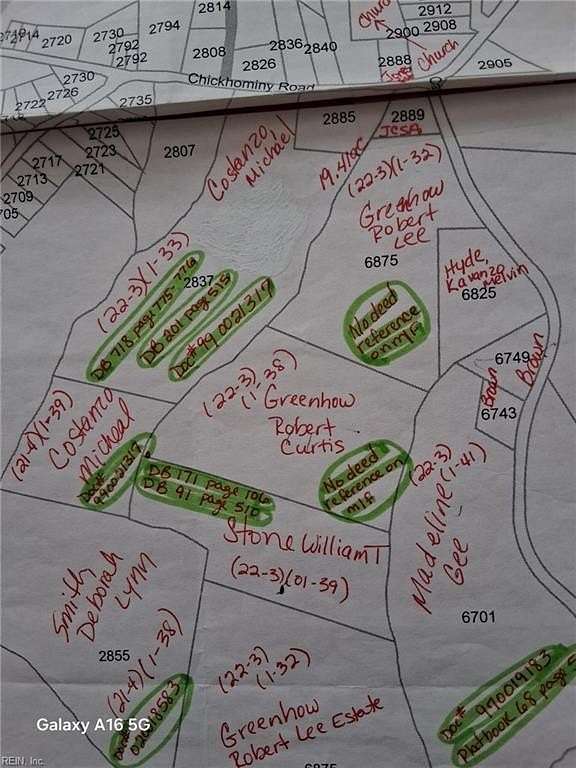 2814
2794
2730
2714
2720
2792
2792
2808
2836
2840
2826
Church
2912
2908
2900
Church
2888
2905
Chickhominy Road
2730
2726
2722
2735
2725
2723
2721
2717
2713
2709
2807
Costanzo,
Michael
2885
2889
JCSA
19.41ac
(22-3)(1-32)
Greenhow
Robert
Lee
6875
Hyde,
Kavanzo
Melvin
6825
(22-3)(1-33)
2837
DB 718 page 775-776
DB 201 page 515
Doc# 99 0021317
No deed
reference
on m/f
6749
Brown
Brown
6743
(22-3)
(1-38)
Greenhow
Robert
Curtis
(21-4)(1-39)
Costanzo
Micheal
DB 171 page 106
DB 91 page 510
No deed
reference on
m/f
(22-3)
(1-41)
Madeline
Gee
Stone William T
(22-3)(01-39)
Smith,
Deborah
Lynn
2855
(21-4)(1-38)
6701
(22-3)
(1-32)
Greenhow
Robert Lee Estate
6875
Doc# 990019183
Platbook 68 page 5
Galaxy A16 5G
REIN, Inc.